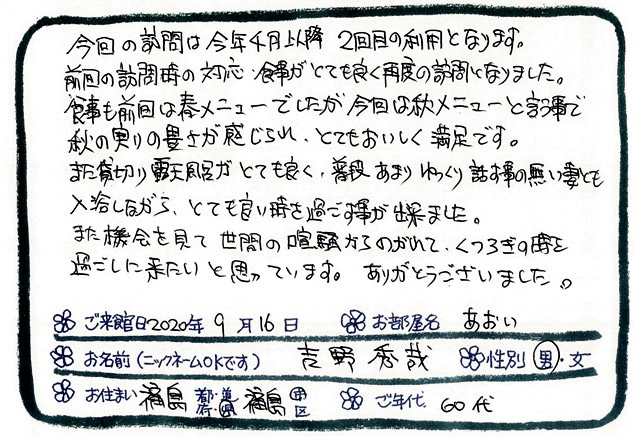 今回の訪問は今年4月以降 2回目の利用となります。
前回の訪問時の対応・食事がとても良く再度の訪問となりました。
食事も前回は春メニューでしたが今回は秋メニューと言う事で
秋の実りの豊さが感じられ、とてもおいしく満足です。
また貸切り露天風呂がとても良く、普段あまりゆっくり話す事の無い妻とも
入浴しながら、とても良い時を過ごす事が出来ました。
また機会を見て世間の喧騒からのがれて、くつろぎの時を
過ごしに来たいと思っています。ありがとうございました。
ご来館日2020年 9月16日 お部屋名 あおい
お名前(ニックネームOKです) 吉野 秀哉 性別 男・女
お住まい 福島 都・道・府・県 福島 市・区 ご年代 60代